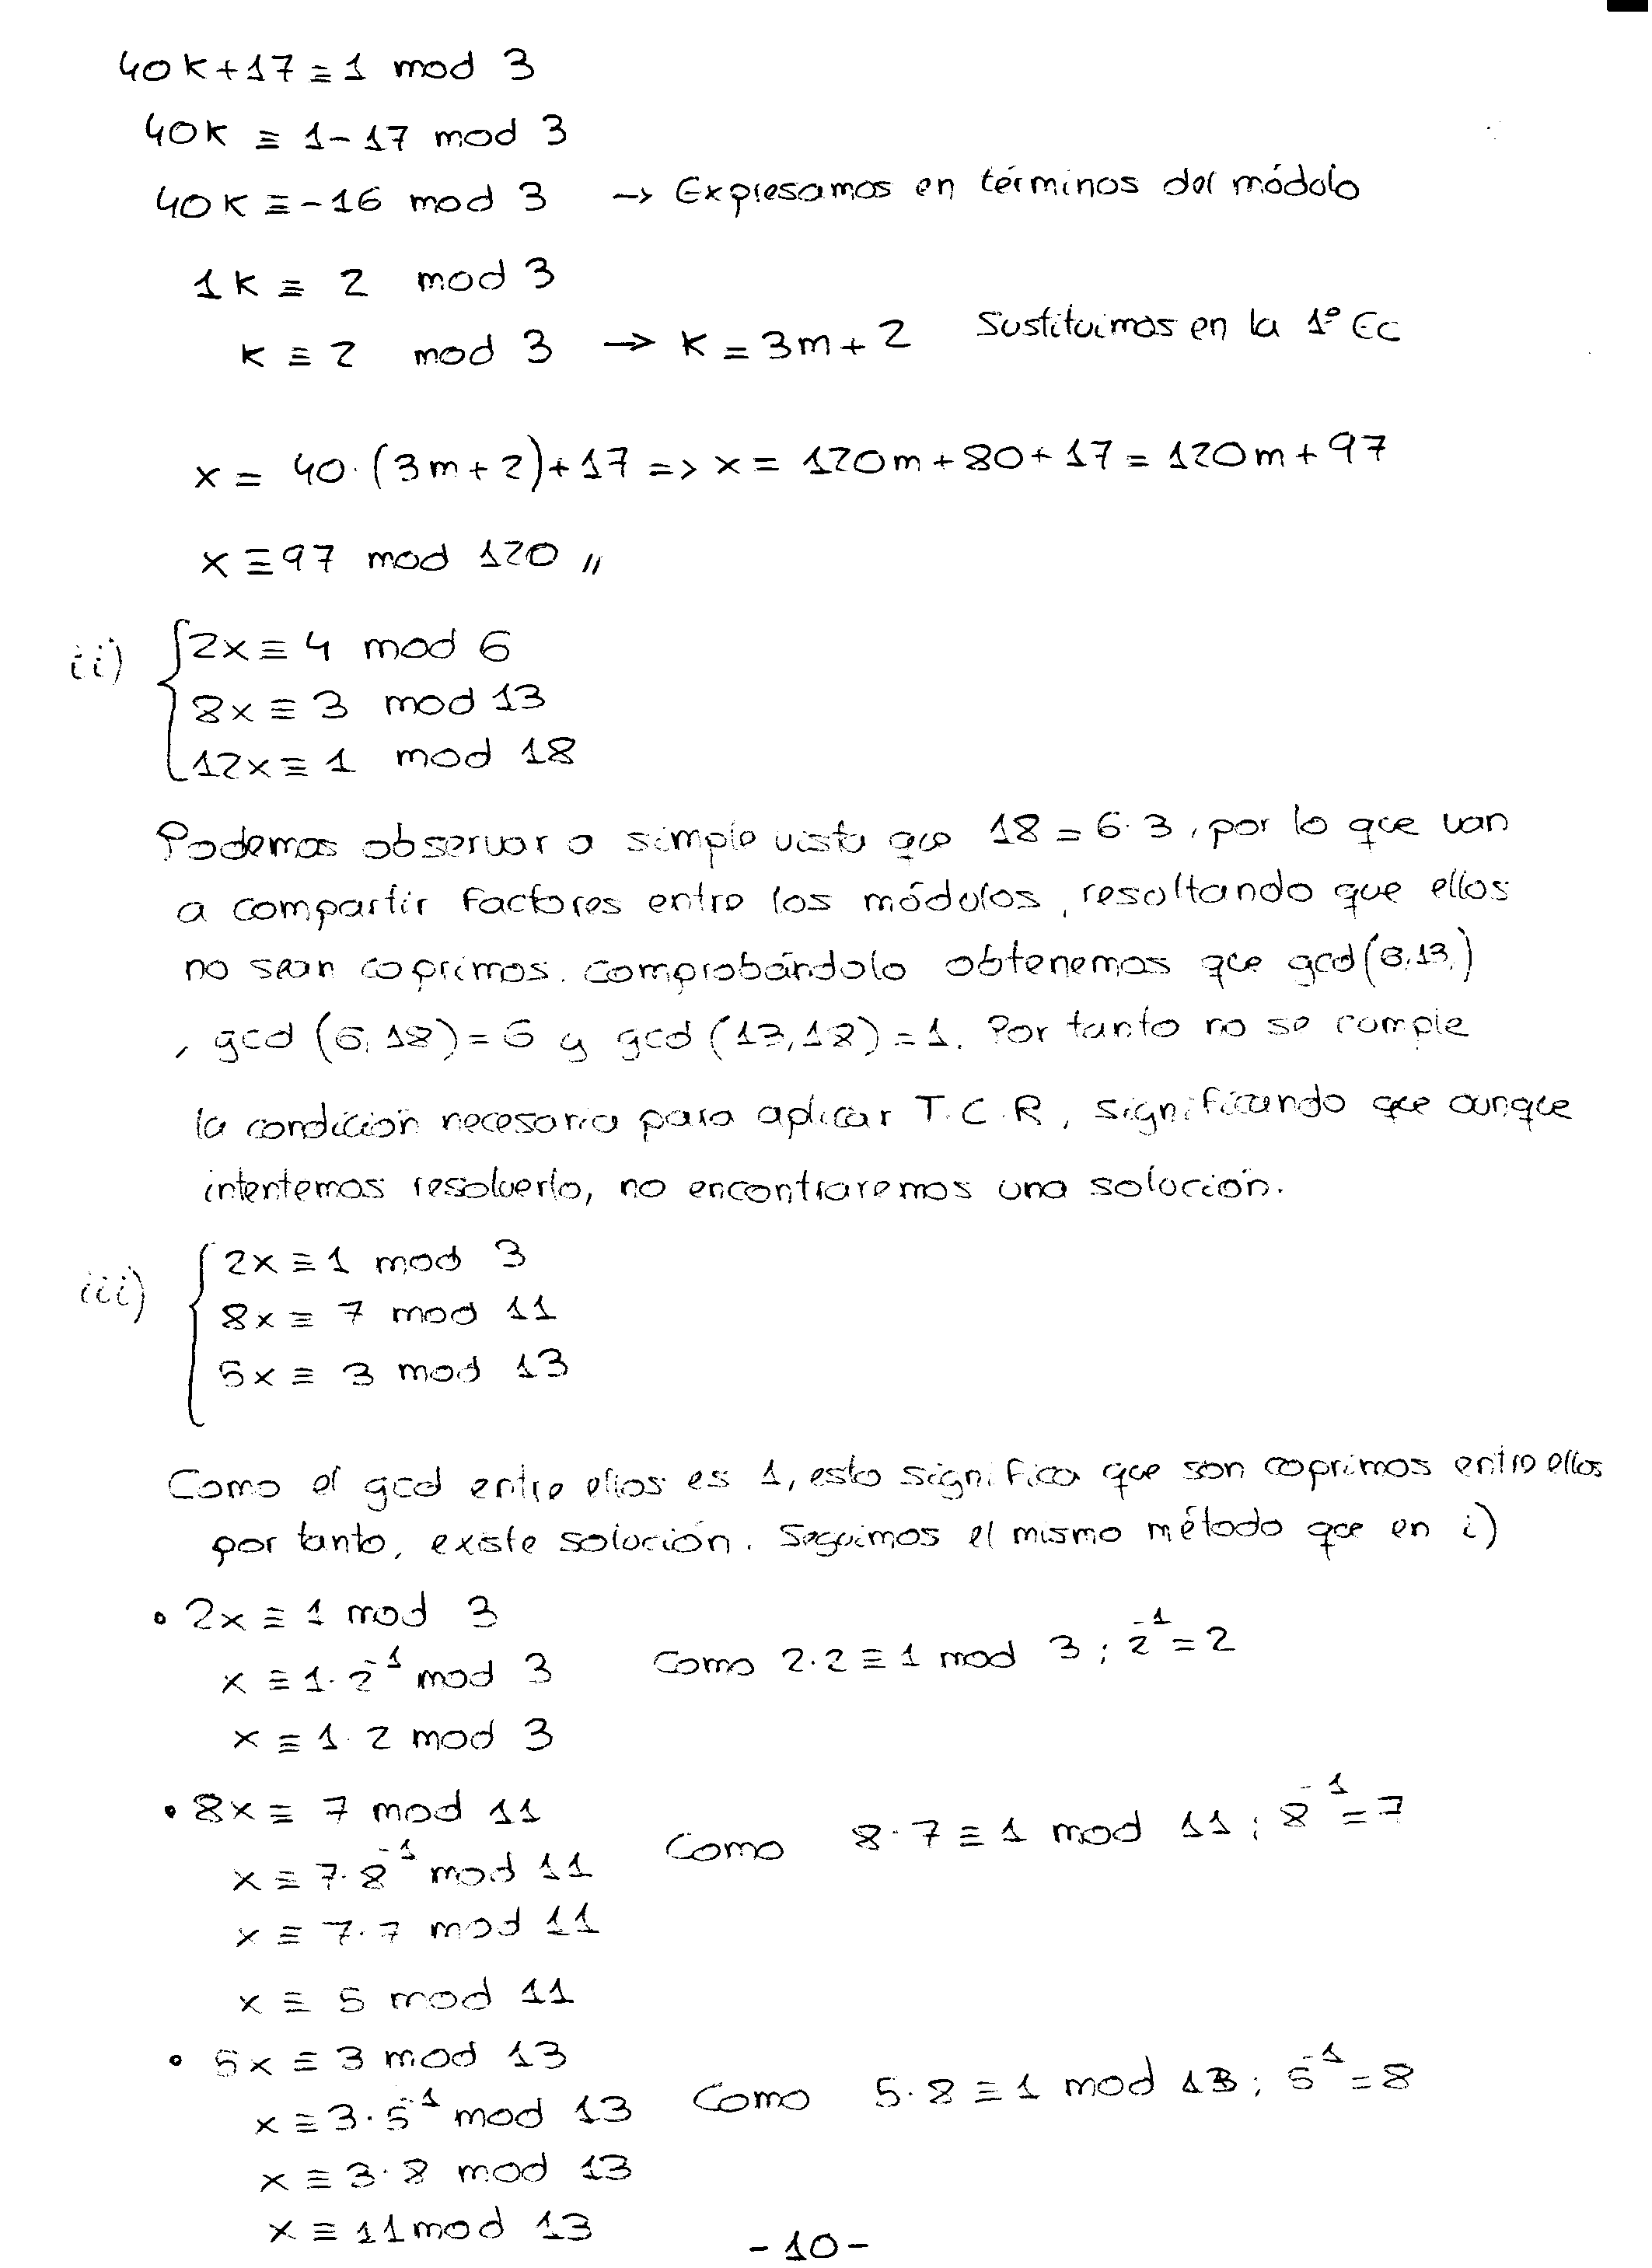 40k+17≡1 mod 3
40k ≡ 1-17 mod 3
40k ≡ -16 mod 3 → Expresamos en términos del módulo
1k ≡ 2 mod 3
k ≡ 2 mod 3 → k = 3m+2 Sustituimos en la 1º Ec
x = 40·(3m+2)+17 => x = 120m+80+17 = 120m+97
x ≡ 97 mod 120 //
ii) { 2x ≡ 4 mod 6
8x ≡ 3 mod 13
12x ≡ 1 mod 18
Podemos observar a simple vista que 18 = 6·3, por lo que van
a compartir factores entre los módulos, resultando que ellos
no sean coprimos. Comprobándolo obtenemos que gcd(6,13,)
, gcd (6,18) = 6 y gcd (13,18) = 1. Por tanto no se cumple
la condición necesaria para aplicar T.C.R, significando que aunque
intentemos resolverlo, no encontraremos una solución.
iii) { 2x ≡ 1 mod 3
8x ≡ 7 mod 11
5x ≡ 3 mod 13
Como el gcd entre ellos es 1, esto significa que son coprimos entre ellos
por tanto, existe solución. Seguimos el mismo método que en i)
• 2x ≡ 1 mod 3
x ≡ 1·2⁻¹ mod 3 Como 2·2 ≡ 1 mod 3 ; 2⁻¹ = 2
x ≡ 1·2 mod 3
• 8x ≡ 7 mod 11
x ≡ 7·8⁻¹ mod 11 Como 8·7 ≡ 1 mod 11 ; 8⁻¹ = 7
x ≡ 7·7 mod 11
x ≡ 5 mod 11
• 5x ≡ 3 mod 13
x ≡ 3·5⁻¹ mod 13 Como 5·8 ≡ 1 mod 13 ; 5⁻¹ = 8
x ≡ 3·8 mod 13
x ≡ 11 mod 13
-10-